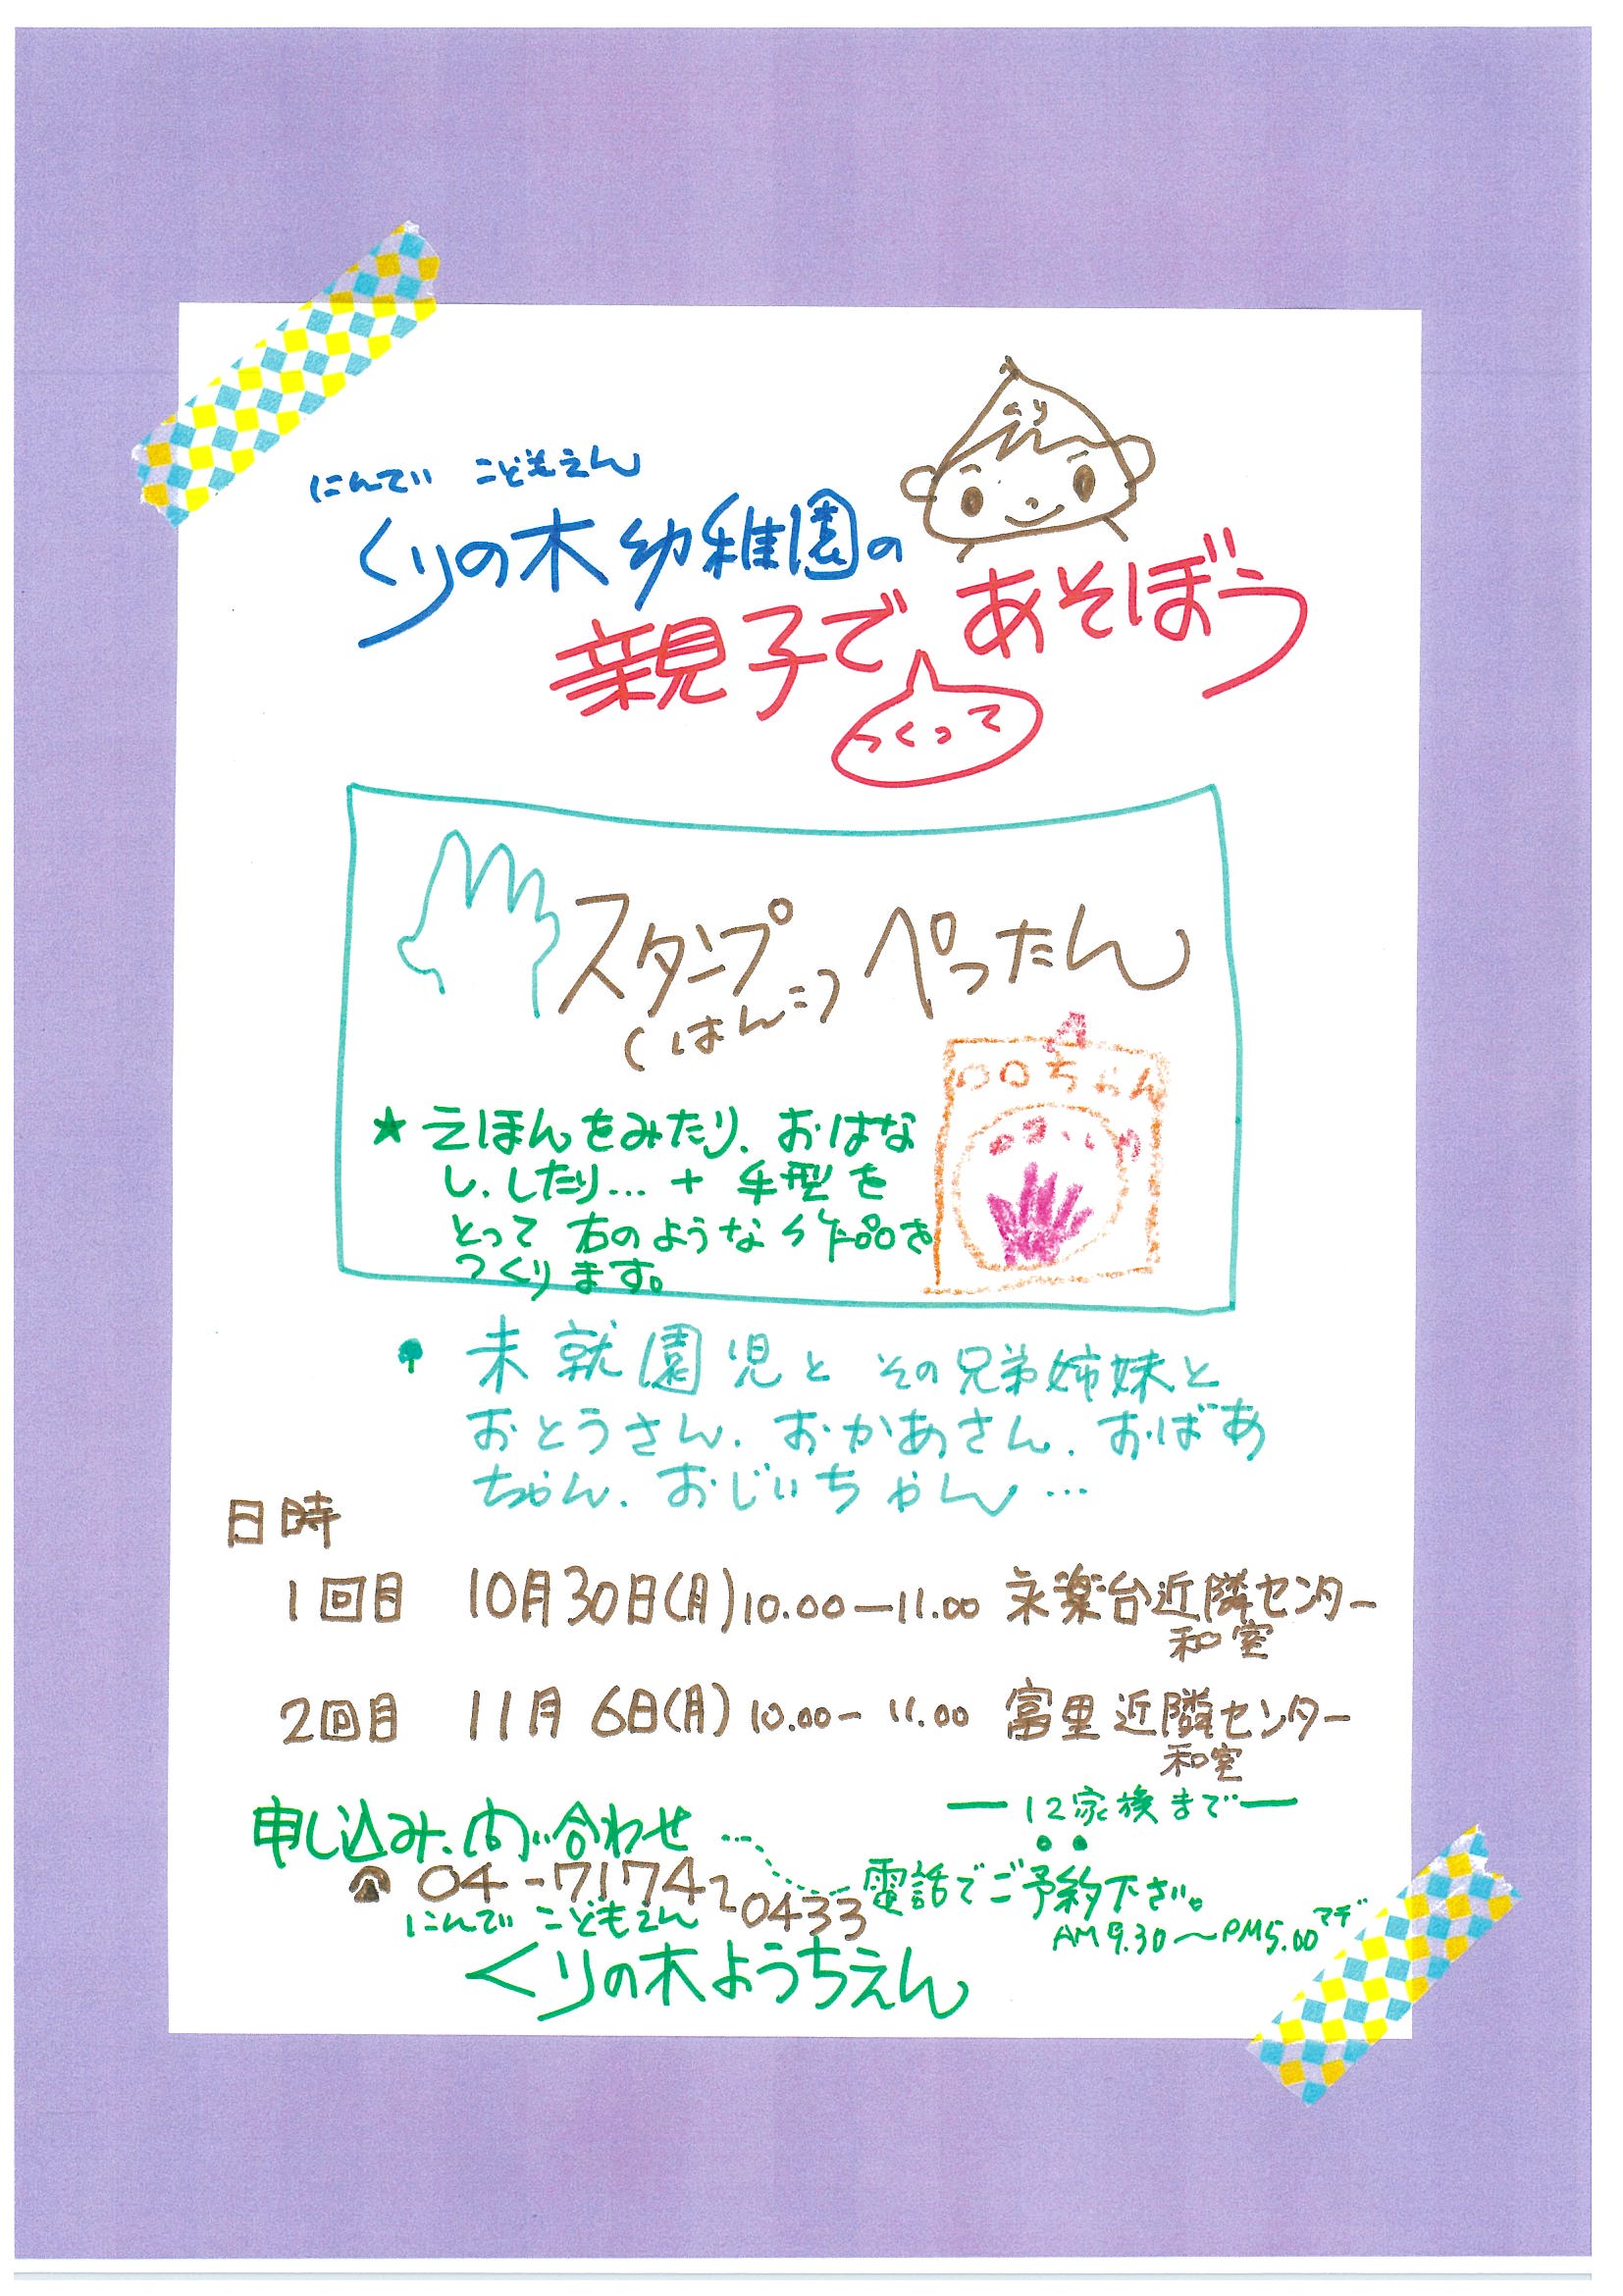 くり
にんてい こどもえん
くりの木幼稚園の
親子で あそぼう
つくって
スタンプ ぺったん
(はんこ)
○○ちゃん
★えほんをみたり、おはな
し、したり…+ 手型を
とって 右のような作品を
つくります。
未就園児と その兄弟姉妹と
おとうさん、おかあさん、おばあ
ちゃん、おじいちゃん…
日時
1回目 10月30日(月)10.00-11.00 永楽台近隣センター
和室
2回目 11月 6日(月)10.00-11.00 富里近隣センター
和室
ー12家族までー
申し込み、問い合わせ…
電話でご予約下さい。
☎ 04-7174-0433
AM9.30〜PM5.00マデ
にんてい こどもえん
くりの木ようちえん